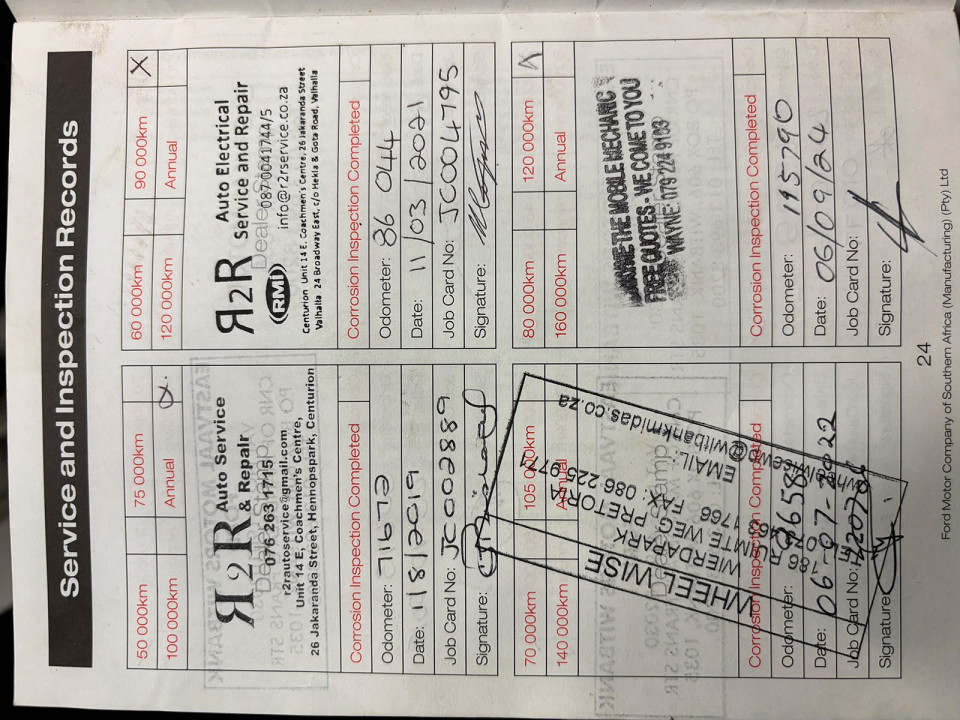 Service and Inspection Records
50 000km
75 000km
100 000km
Annual
R2R Auto Service
& Repair
076 263 1715
r2rautoservice@gmail.com
Unit 14 E, Coachmen's Centre,
26 Jakaranda Street, Hennopspark, Centurion
Corrosion Inspection Completed
Odometer: 71673
Date: 11/8/2019
Job Card No: JC0002889
Signature:
60 000km
90 000km X
120 000km
Annual
R2R Auto Electrical
Service and Repair
087 0041744/5
RMI
info@r2rservice.co.za
Centurion Unit 14 E, Coachmen's Centre, 26 Jakaranda Street
Valhalla 24 Broadway East, c/o Hekla & Gota Road, Valhalla
Corrosion Inspection Completed
Odometer: 86 044
Date: 11/03/2021
Job Card No: JC0004795
Signature:
70 000km
105 000km
140 000km
Annual
WHEELWISE
WIERDAPARK
PRETORIA
FAX: 086 225
EMAIL:
@witbankmidas.co.za
Corrosion Inspection Completed
Odometer:
Date: 06-07-2022
Job Card No:
Signature:
80 000km
120 000km
160 000km
Annual
WAYNE THE MOBILE MECHANIC
FREE QUOTES - WE COME TO YOU
WAYNE: 079 224 9103
Corrosion Inspection Completed
Odometer: 195790
Date: 06/09/24
Job Card No:
Signature:
24
Ford Motor Company of Southern Africa (Manufacturing) (Pty) Ltd